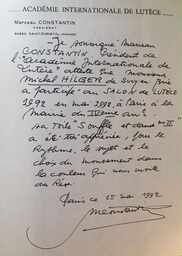 ACADÉMIE INTERNATIONALE DE LUTÈCE
MARCEAU CONSTANTIN
PRÉSIDENT
Je soussigné Marceau
CONSTANTIN Président de
l'Académie Internationale de
Lutèce atteste que Monsieur
Michel HILGER de
a participé au SALON de LUTÈCE
1992 en mai 1992, à Paris à la
Mairie du ème
Sa Toile "Souffle et danse III"
a été très appréciée, pour le
Rythme, le sujet et le
choix du mouvement dans
les couleurs
Paris ce 25 1992